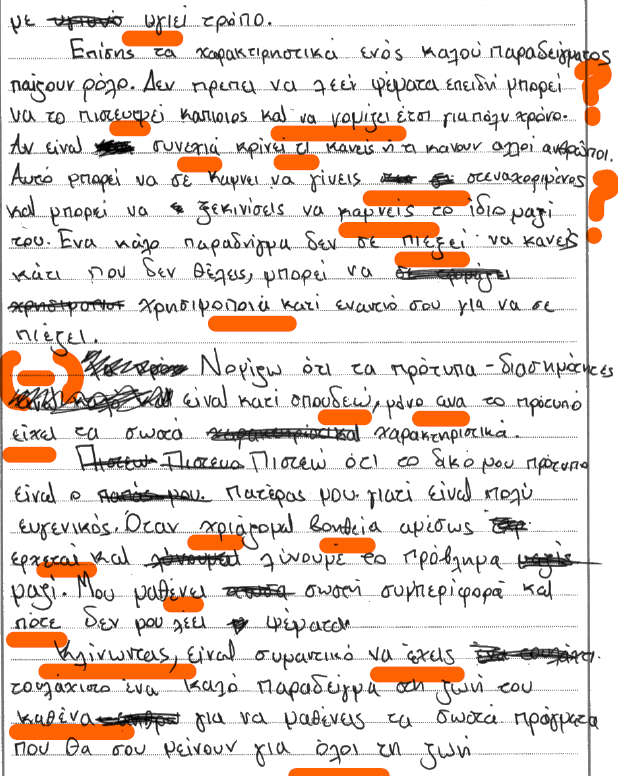 με υγιεί τρόπο.
Επίσης τα χαρακτιρηστικά ενός καλού παραδείγματος
παίζουν ρόλο. Δεν πρεπει να λέει ψέματα επειδή μπορεί
να το πιστευψεί καποιος και να νομίζει έτσι για πολυ χρόνο.
Αν είναι συνεχιά κρίνει τι κανεις ή τι κανουν αλλοι ανθρώποι.
Αυτό μπορεί να σε καμνει να γίνεις στεναχοριμένος
και μπορεί να ξεκινίσεις να καμνείς το ίδιο μαζί
του. Ενα κάλο παραδήγμα δεν σε πιέζεί να κανείς
κάτι που δεν θέλεις, μπορεί να
χρησιμοποιά κατι εναντιό σου για να σε
πιέζει.
Νομίζω ότι τα πρότυπα - διασημότητες
είναι κατί σπουδεώ, μόνο ανα το πρότυπό
είχει τα σωστά χαρακτηριστικά.
Πιστεώ ότι το δικό μου πρότυπο
είναι ο πατέρας μου γιατί είναι πολύ
ευγενικός. Όταν χριάζομαι βοηθεία αμέσως
ερχεται και λύνουμε το πρόβλημα
μαζί. Μου μαθένει σωστή συμπεριφορά και
πότε δεν μου λέει ψέματα
Κλίνωντας, είναι συμαντικό να έχεις
τουλάχιστο ένα καλό παραδείγμα στη ζωή του
καθένα για να μαθένεις τα σωστά πράγματα
που θα σου μείνουν για όλοι τη ζωή
? ! ? (-)